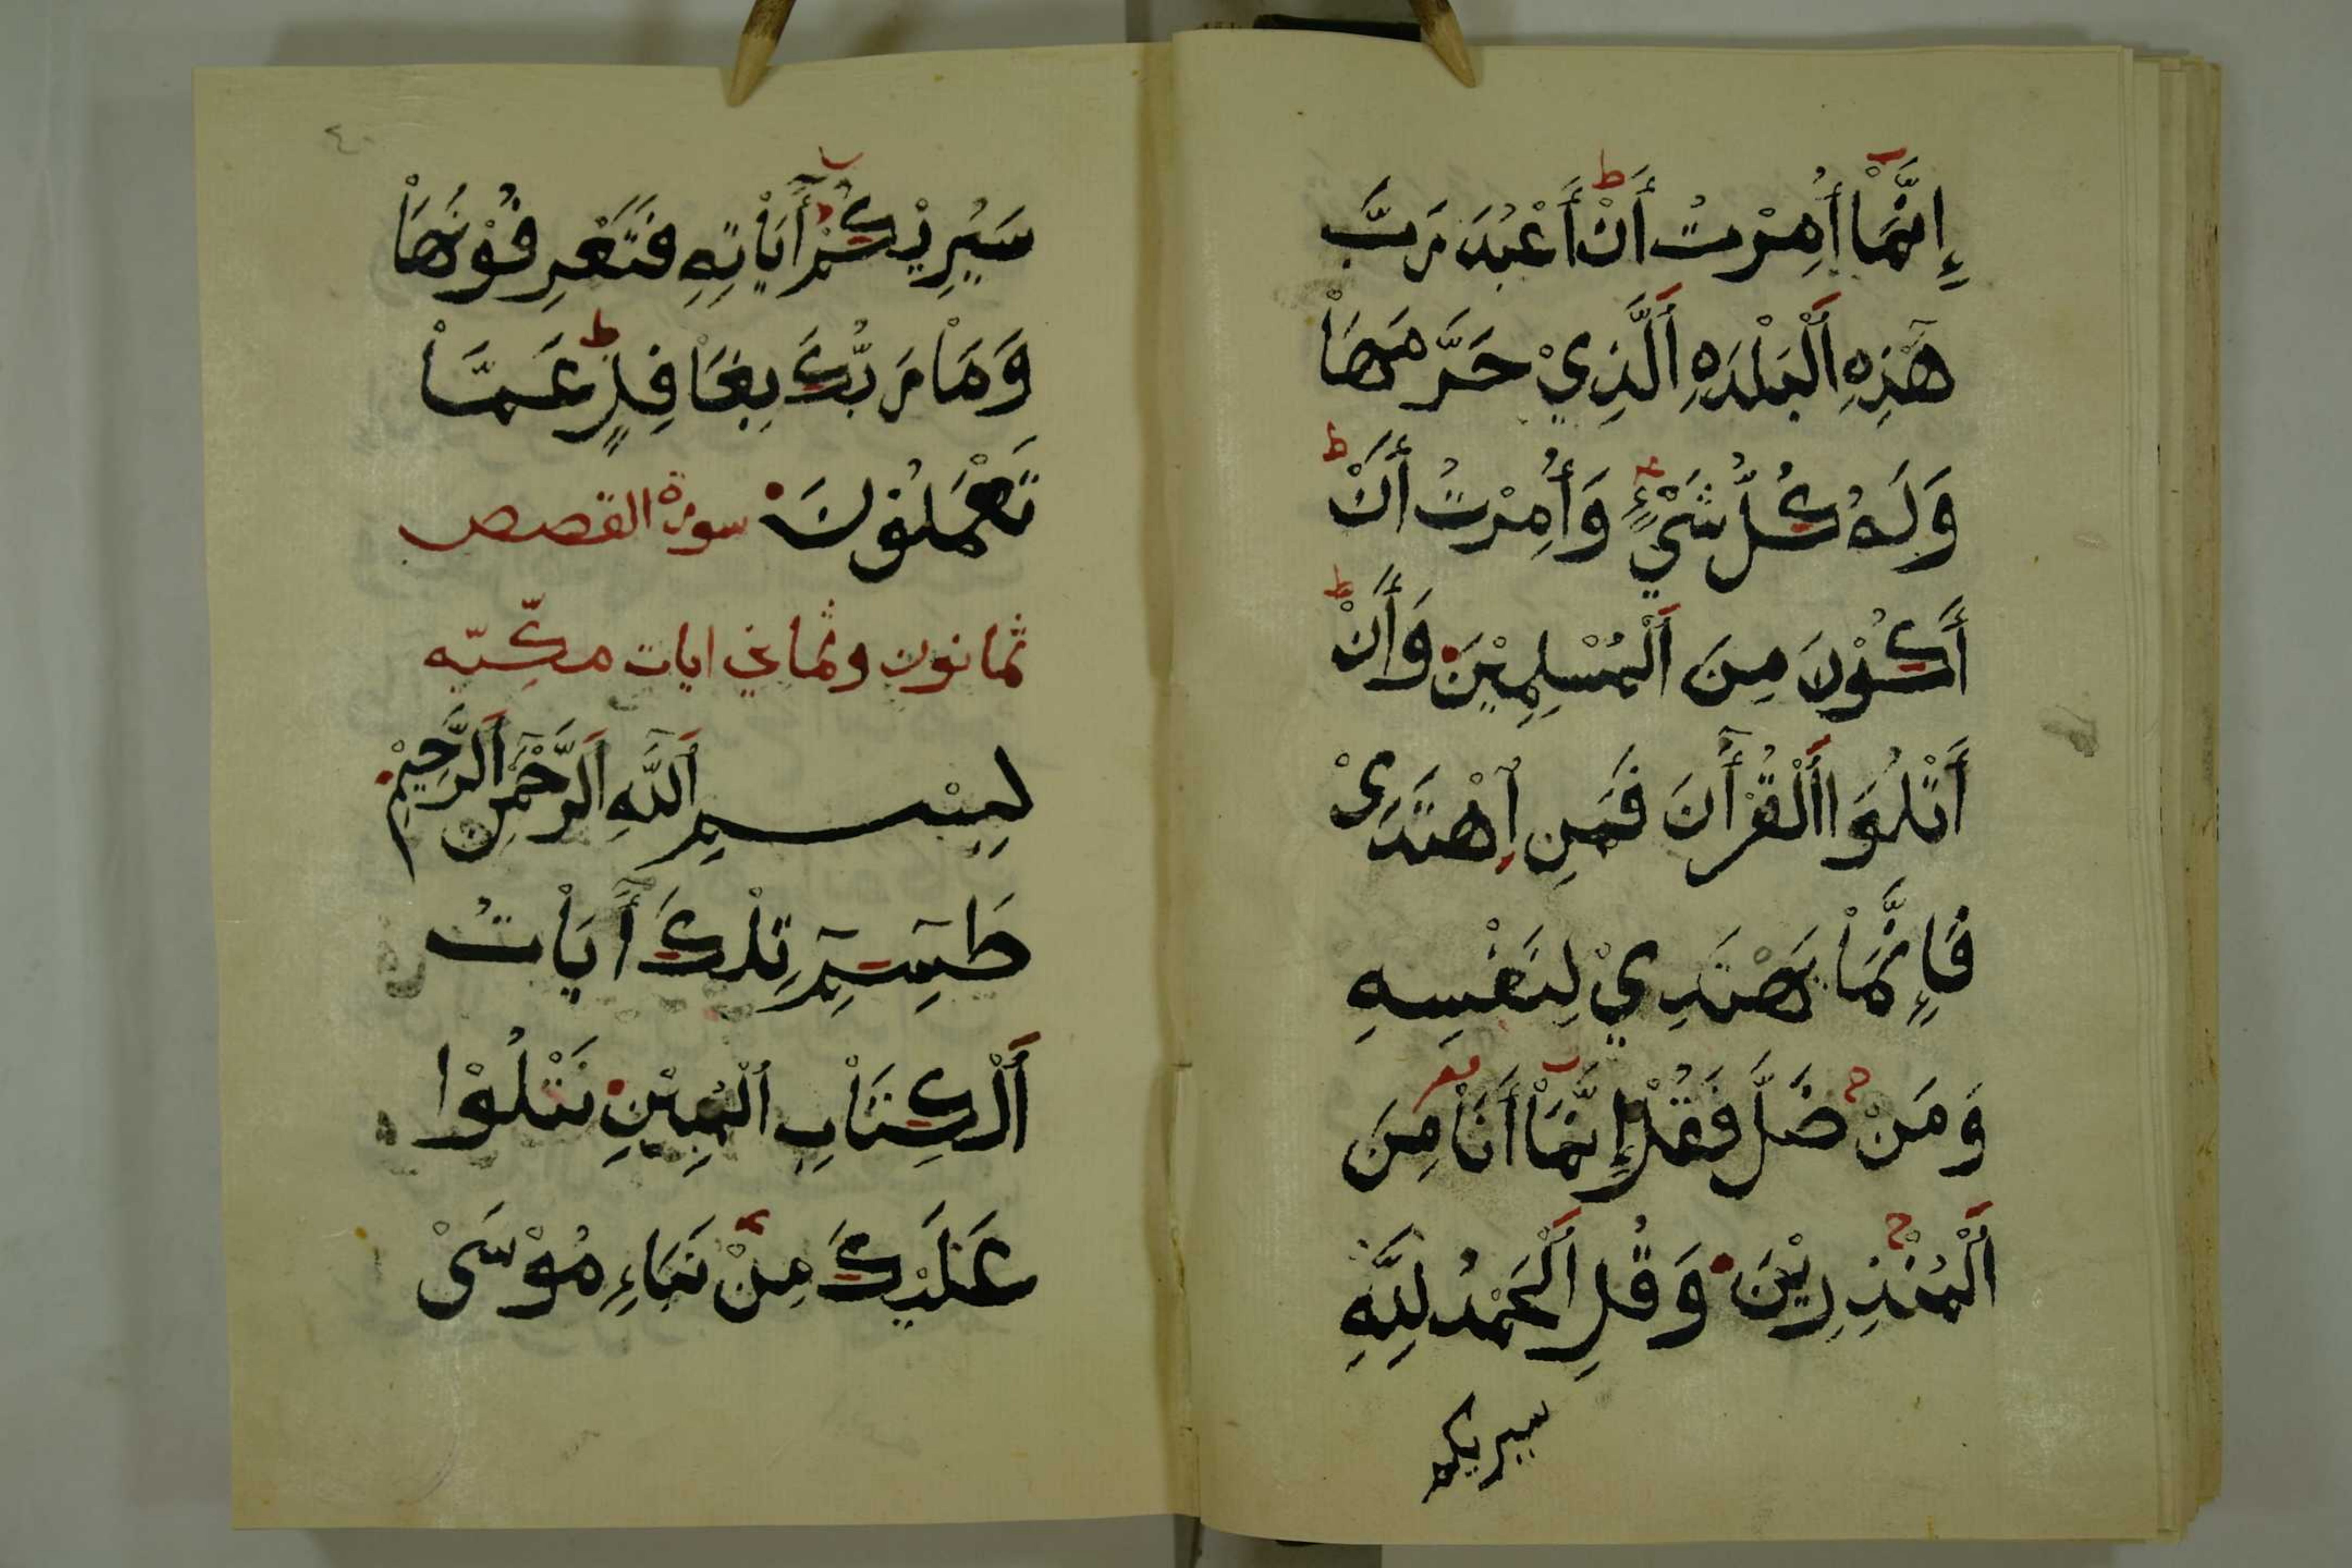 إِنَّمَاْ أُمِرْتُ أَنْ أَعْبُدَ رَبَّ
هَٰذِهِ اَلْبَلْدَهِ اَلَّذِيْ حَرَّمَهَاْ
وَلَهُ كُلُّ شَيْءٍ وَأُمِرْتُ أَنْ
أَكُوْنَ مِنَ اَلْمُسْلِمِيْنَ وَأَنْ
أَتْلُوَا اَلْقُرْأٓنَ فَمَنِ اِهْتَدَىْ
فَإِنَّمَاْ يَهْتَدِيْ لِنَفْسِهِ
وَمَنْ ضَلَّ فَقُلْ إِنَّمَاْ أَنَاْ مِنَ
اَلْمُنْذِرِيْنَ وَقُلِ اَلْحَمْدُ لِلَّهِ
سيريكم
٤٠
سَيُرِيْكُمْ أٓيَاْتِهِ فَتَعْرِفُوْنَهَاْ
وَمَاْ رَبُّكَ بِغَاْفِلٍ عَمَّاْ
تَعْمَلُوْنَ سورة القصص
ثمانون وثماني ايات مكّيّه
بِسْمِ اَللَّهِ اَلرَّحْمٰنِ اَلرَّحِيْمِ
طَسِٓمِٓ تِلْكَ أٓيَاْتُ
اَلْكِتَاْبِ الْمُبِيْنِ نَتْلُوْا
عَلَيْكَ مِنْ نَبَاءِ مُوْسَىْ